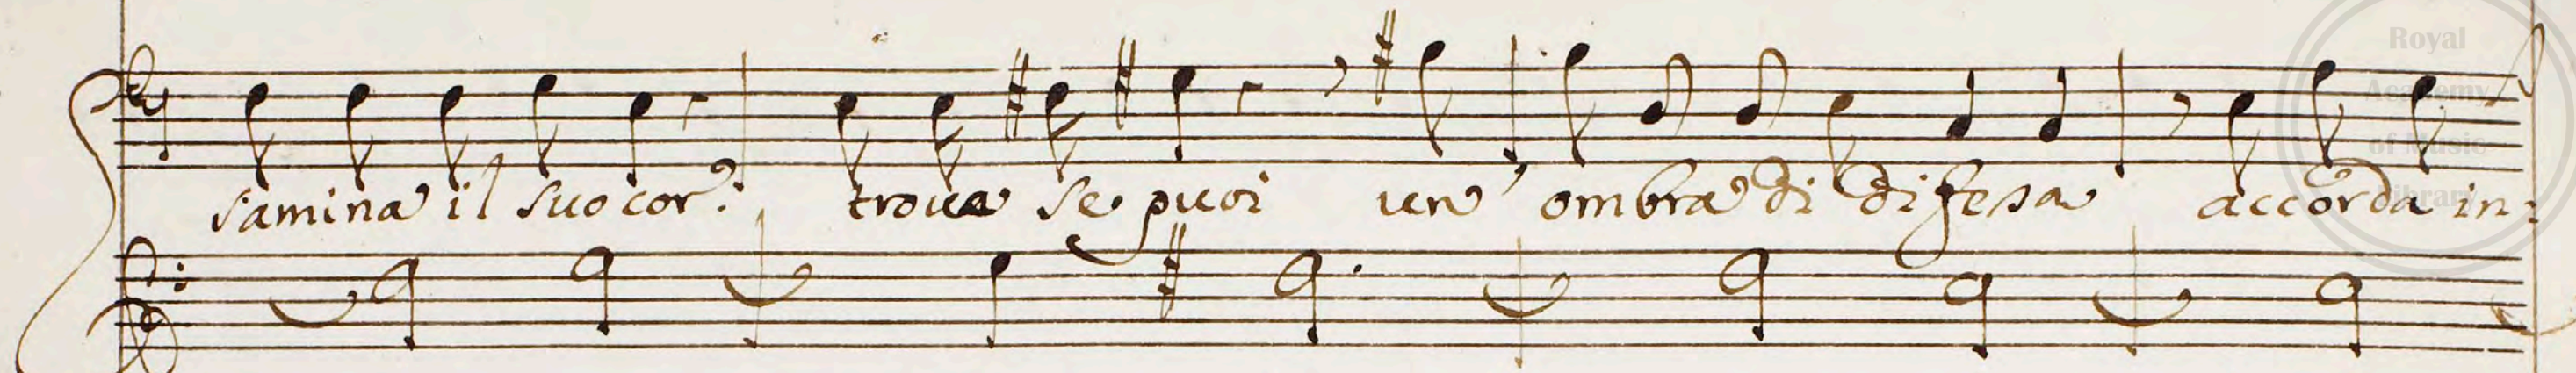 Royal
Academy
of Music
Library
samina il suo cor? trova se puoi un' ombra di difesa accorda in: